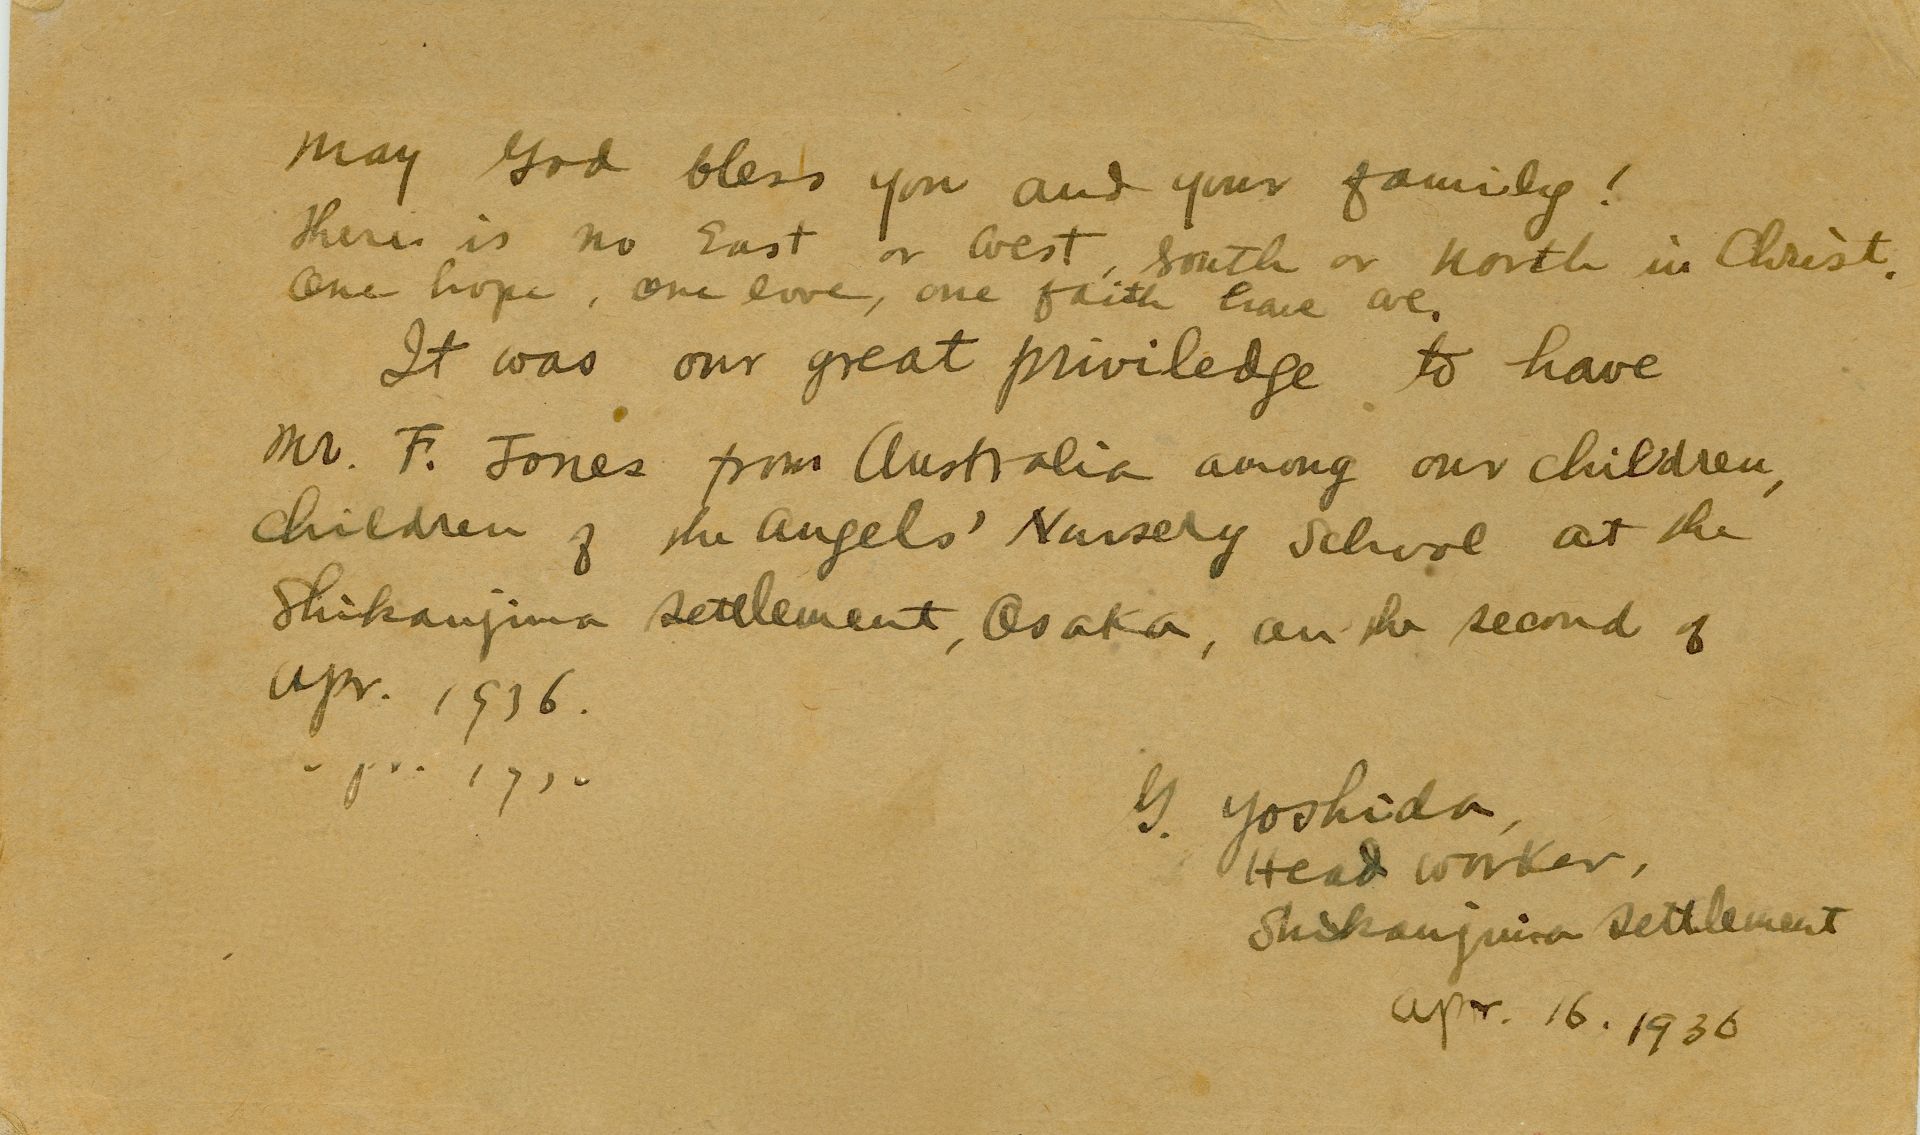 May God bless you and your family!
There is no East or West, South or North in Christ.
One hope, one love, one faith have we.
It was our great priviledge to have
Mr. F. Jones from Australia among our children,
children of the Angels' Nursery School at the
Shikanjima Settlement, Osaka, on the second of
Apr. 1936.
Y. Yoshida,
Head worker,
Shikanjima Settlement
Apr. 16. 1936